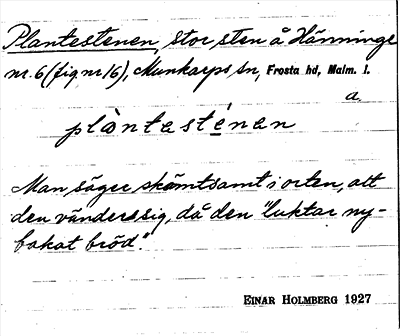 Plantestenen, stor sten å Hänninge
nr. 6 (fig nr 16), Munkarps sn, Frosta hd, Malm. l.
a.
plàntesténan
Man säger skämtsamt i orten, att
den vänder sig, då den "luktar ny-
bakat bröd."
EINAR HOLMBERG 1927